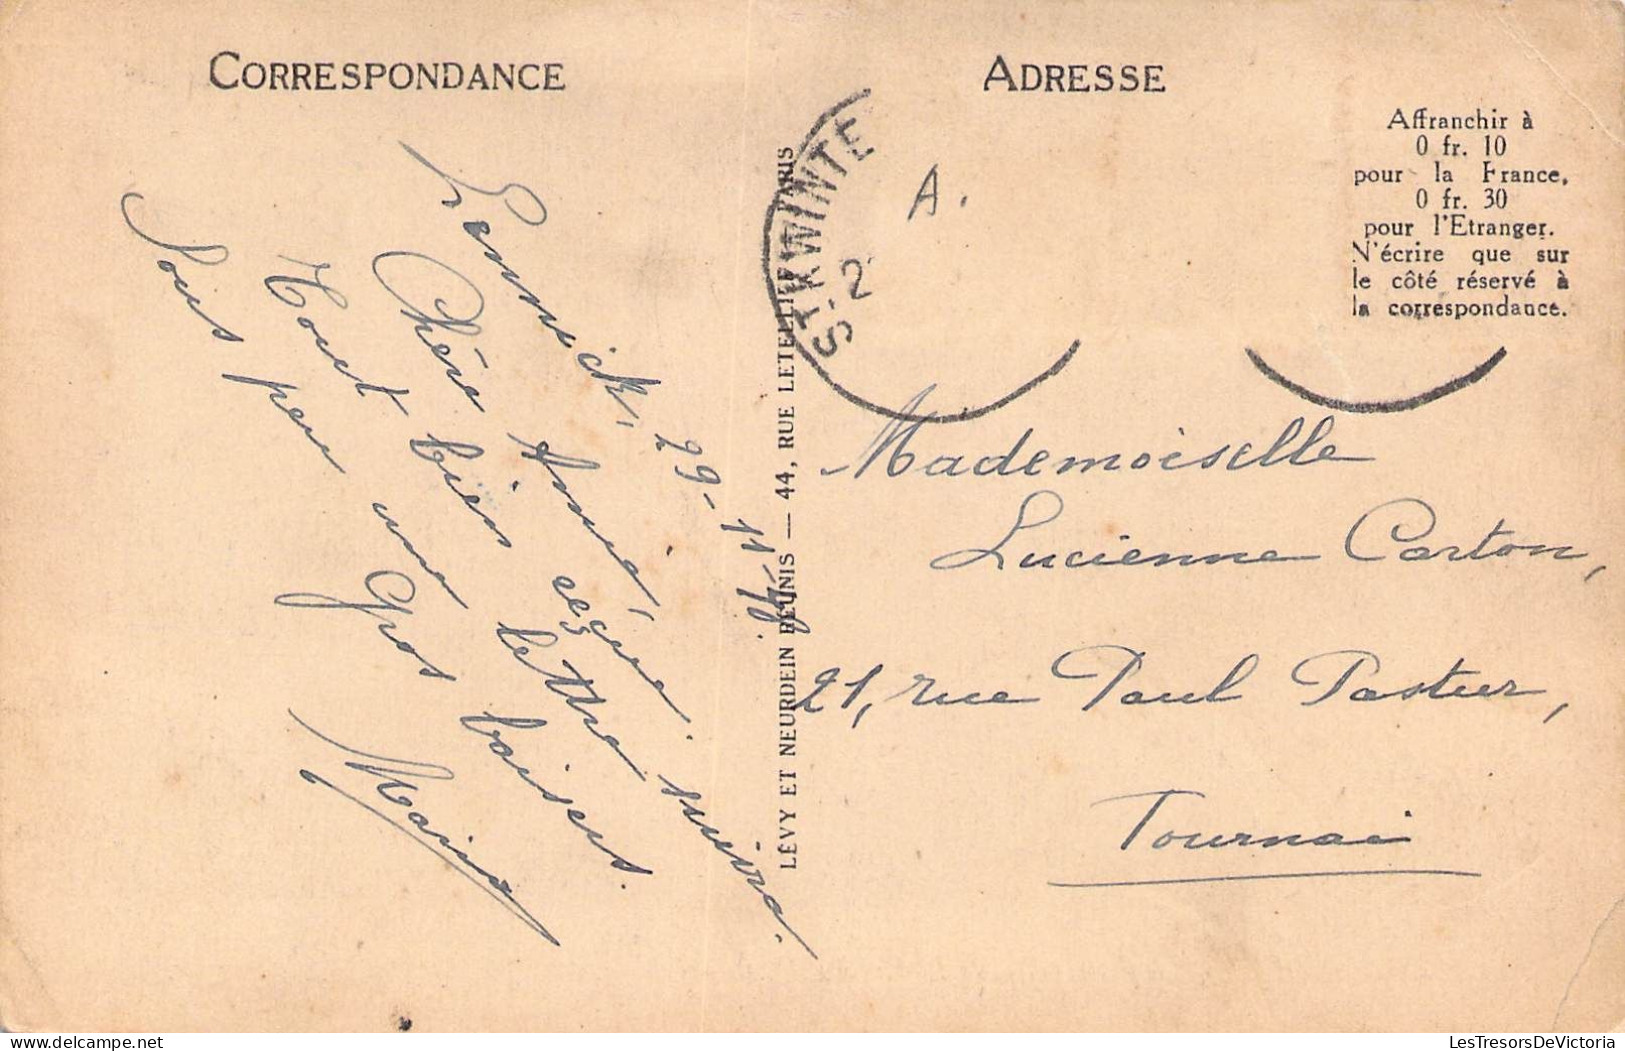 CORRESPONDANCE
Lennick, 29-11-
Chère Aimée,
Tout bien reçu.
lettre suivra.
Sous peu une
Gros baisers.
Maria
LÉVY ET NEURDEIN RÉUNIS — 44, RUE LETELLIER, PARIS
ST KWINTE
-2
A.
ADRESSE
Affranchir à
0 fr. 10
pour la France,
0 fr. 30
pour l'Etranger.
N'écrire que sur
le côté réservé à
la correspondance.
Mademoiselle
Lucienne Carton,
21, rue Paul Pasteur,
Tournai
LesTresorsDeVictoria.com